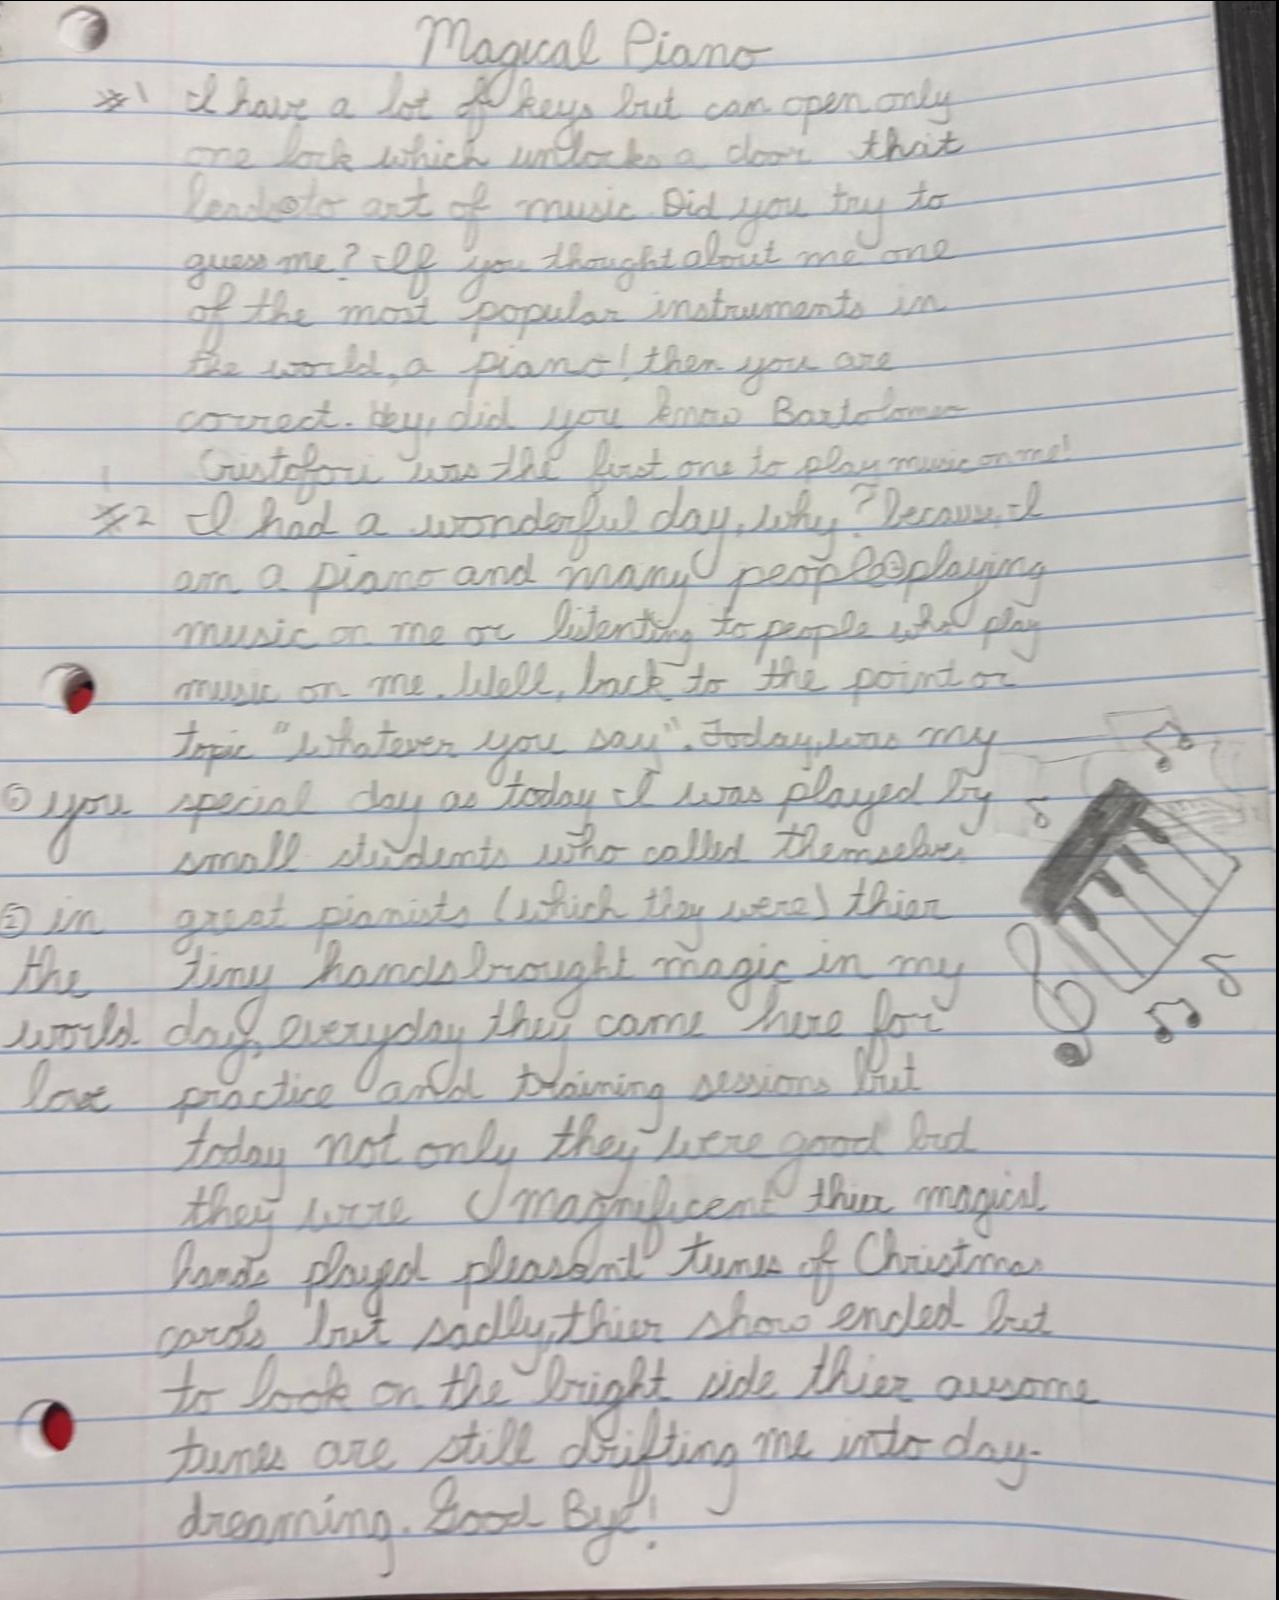 Magical Piano
#1 I have a lot of keys but can open only
one lock which unlocks a door that
leads to art of music. Did you try to
guess me? If you thought about me one
of the most popular instruments in
the world, a piano! then you are
correct. Hey, did you know Bartolomeo
Cristofori was the first one to play music on me!
#2 I had a wonderful day, why? Because, I
am a piano and many people ② playing
music on me or listenting to people who play
music on me. Well, back to the point or
topic "whatever you say". Today, was my
① you special day as today I was played by
small students who called themselves
② in great pianists (which they were) thier
the tiny hands brought magic in my
world day, everyday they came here for
love practice and training sessions but
today not only they were good but
they were magnificent thier magical
hands played pleasant tunes of Christmas
carols but sadly, thier show ended but
to look on the bright side thier ausome
tunes are still drifting me into day-
dreaming. Good Bye!